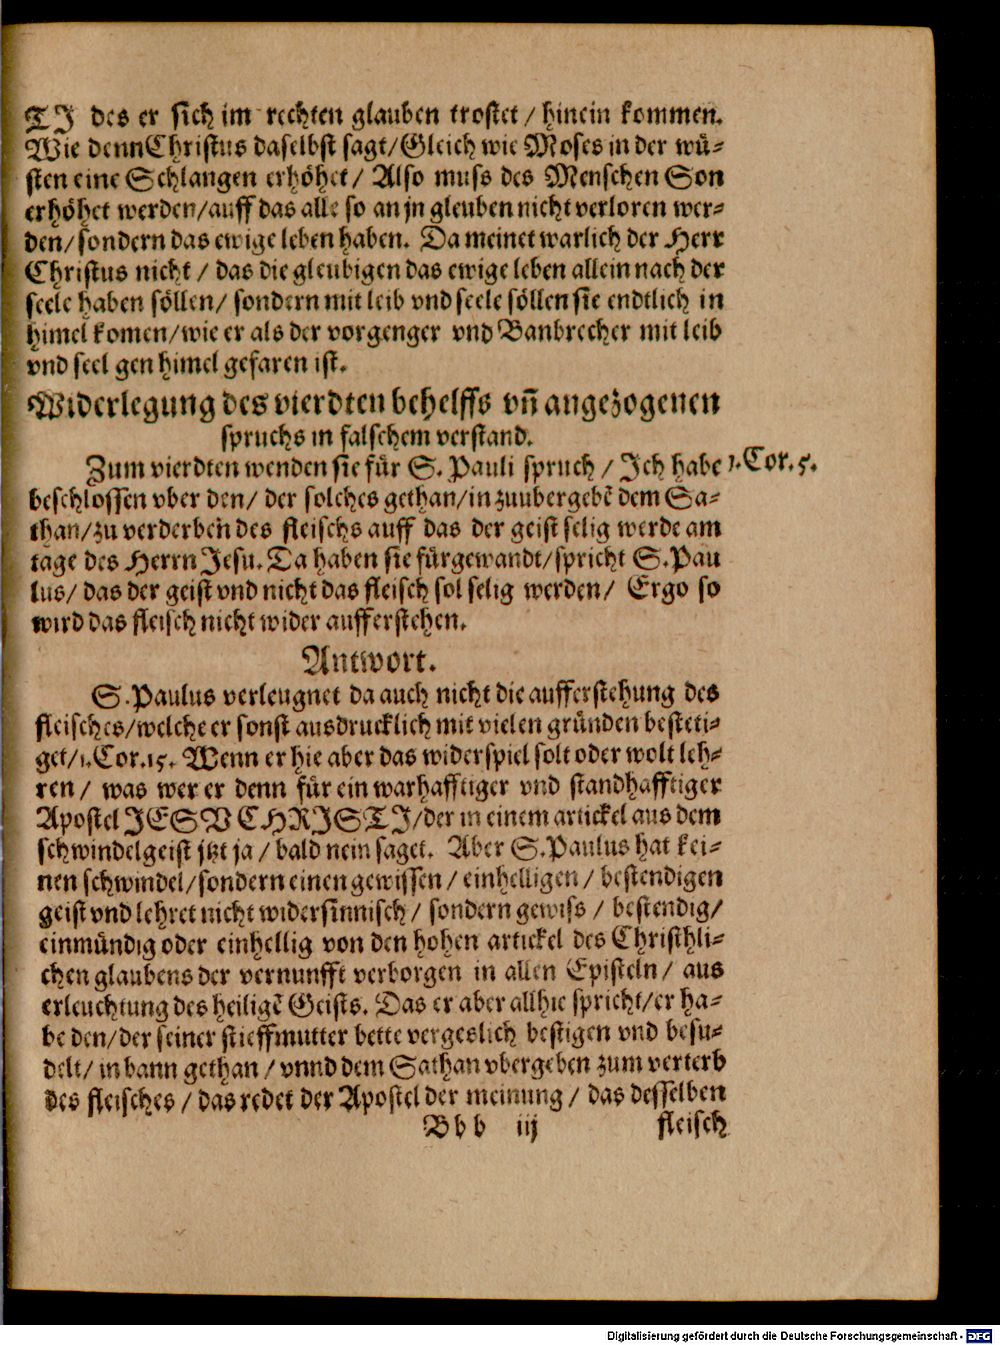 TJ des er sich im rechten glauben trostet / hinein kommen.
Wie denn Christus daselbst sagt/Gleich wie Moses in der wü-
sten eine Schlangen erhöhet/ Also muss des Menschen Son
erhöhet werden/auff das alle so an jn gleuben nicht verloren wer-
den/sondern das ewige leben haben. Da meinet warlich der Herr
Christus nicht / das die gleubigen das ewige leben allein nach der
seele haben söllen/ sondern mit leib vnd seele söllen sie endtlich in
himel komen/wie er als der vorgenger vnd Banbrecher mit leib
vnd seel gen himel gefaren ist.
Widerlegung des vierdten behelffs vn̄ angezogenen
spruchs in falschem verstand.
Zum vierdten wenden sie für S. Pauli spruch / Jch habe 1.Cor.5.
beschlossen vber den/ der solches gethan/in zuubergebē dem Sa-
than/zu verderben des fleischs auff das der geist selig werde am
tage des Herrn Jesu. Da haben sie fürgewandt/spricht S.Pau
lus/ das der geist vnd nicht das fleisch sol selig werden/ Ergo so
wird das fleisch nicht wider aufferstehen.
Antwort.
S.Paulus verleugnet da auch nicht die aufferstehung des
fleisches/welche er sonst ausdrucklich mit vielen gründen besteti-
get/1.Cor.15. Wenn er hie aber das widerspiel solt oder wolt leh-
ren / was wer er denn für ein warhafftiger vnd standhafftiger
Apostel JESV CHRJSTJ/der in einem artickel aus dem
schwindelgeist jtzt ja / bald nein saget. Aber S.Paulus hat kei-
nen schwindel/sondern einen gewissen / einhelligen / bestendigen
geist vnd lehret nicht widersinnisch / sondern gewiss / bestendig/
einmündig oder einhellig von den hohen artickel des Christhli-
chen glaubens der vernunfft verborgen in allen Episteln / aus
erleuchtung des heiligē Geists. Das er aber allhie spricht/er ha-
be den/der seiner stieffmutter bette vergeslich bestigen vnd besu-
delt/ in bann gethan / vnnd dem Sathan vbergeben zum verterb
des fleisches / das redet der Apostel der meinung / das desselben
Bbb iij fleisch
Digitalisierung gefördert durch die Deutsche Forschungsgemeinschaft - DFG